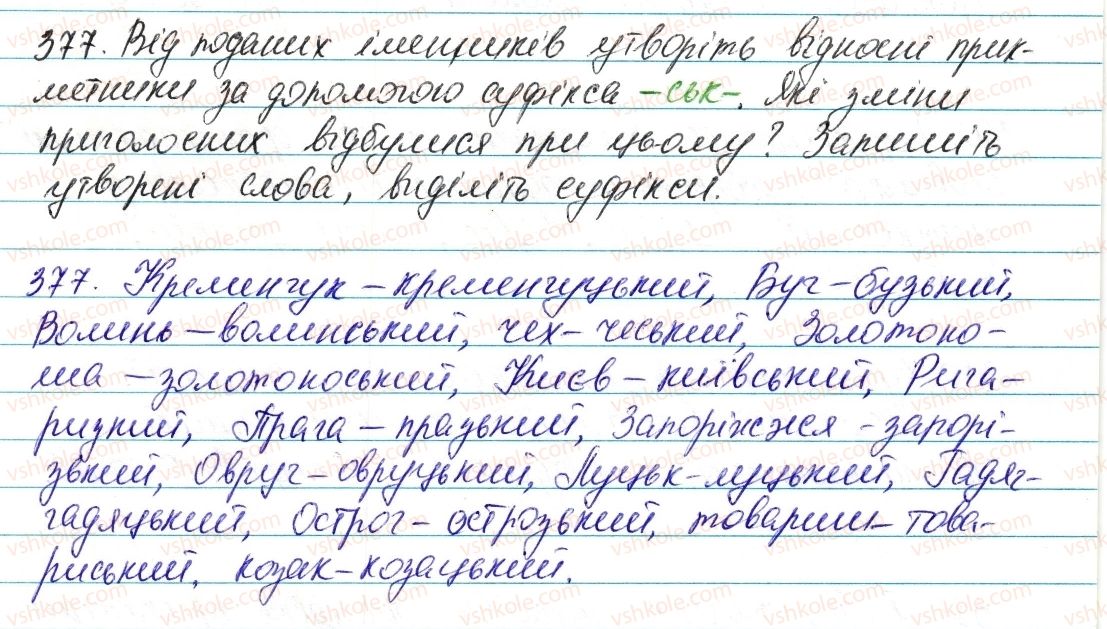 377. Від поданих іменників утворіть відносні прик-
метники за допомогою суфікса -ськ-. Які зміни
приголосних відбулися при цьому? Запишіть
утворені слова, виділіть суфікси.
377. Кременчук – кременчуцький, Буг – бузький,
Волинь – волинський, чех – чеський, Золотоно-
ша – золотоноський, Києв – київський, Рига –
ризький, Прага – празький, Запоріжжя – запорі-
зький, Овруч – овруцький, Луцьк – луцький, Гадяч –
гадяцький, Острог – острозький, товариш – това-
риський, козак – козацький.